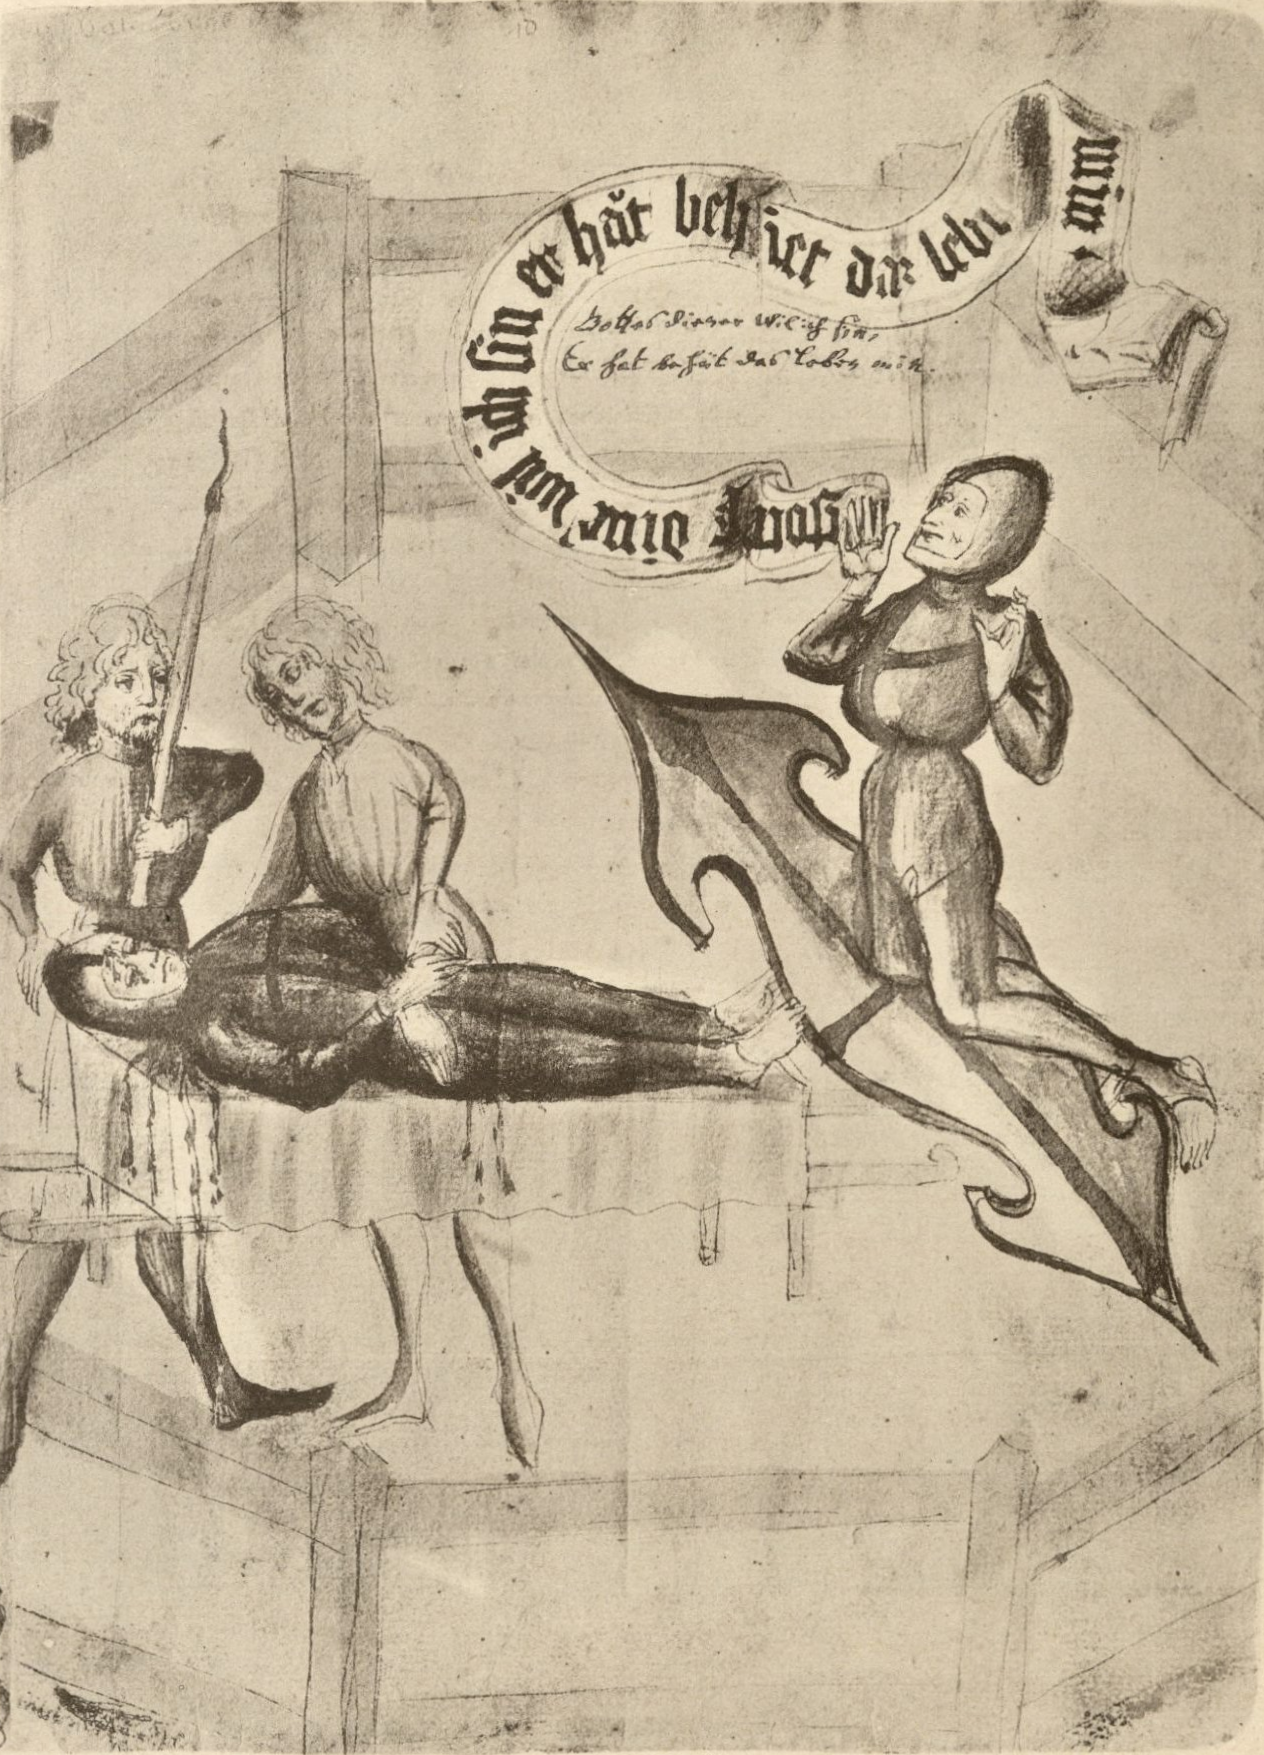 Gots diner wil ich sin er hăt behiet das lebn min
Gottes diener wil ich sin,
Er hat behüt das leben min.